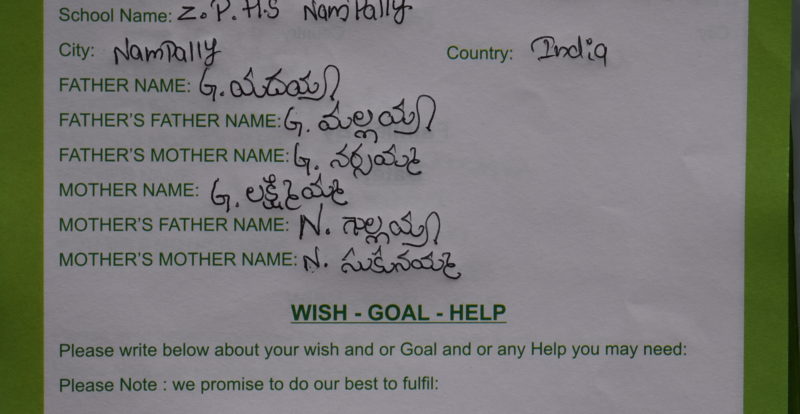 School Name: Z.P.H.S Nampally
City: Nampally Country: India
FATHER NAME: G. యదయ్య
FATHER'S FATHER NAME: G. మల్లయ్య
FATHER'S MOTHER NAME: G. నర్సమ్మ
MOTHER NAME: G. లక్ష్మమ్మ
MOTHER'S FATHER NAME: N. గాల్లయ్య
MOTHER'S MOTHER NAME: N.
WISH - GOAL - HELP
Please write below about your wish and or Goal and or any Help you may need:
Please Note : we promise to do our best to fulfil: